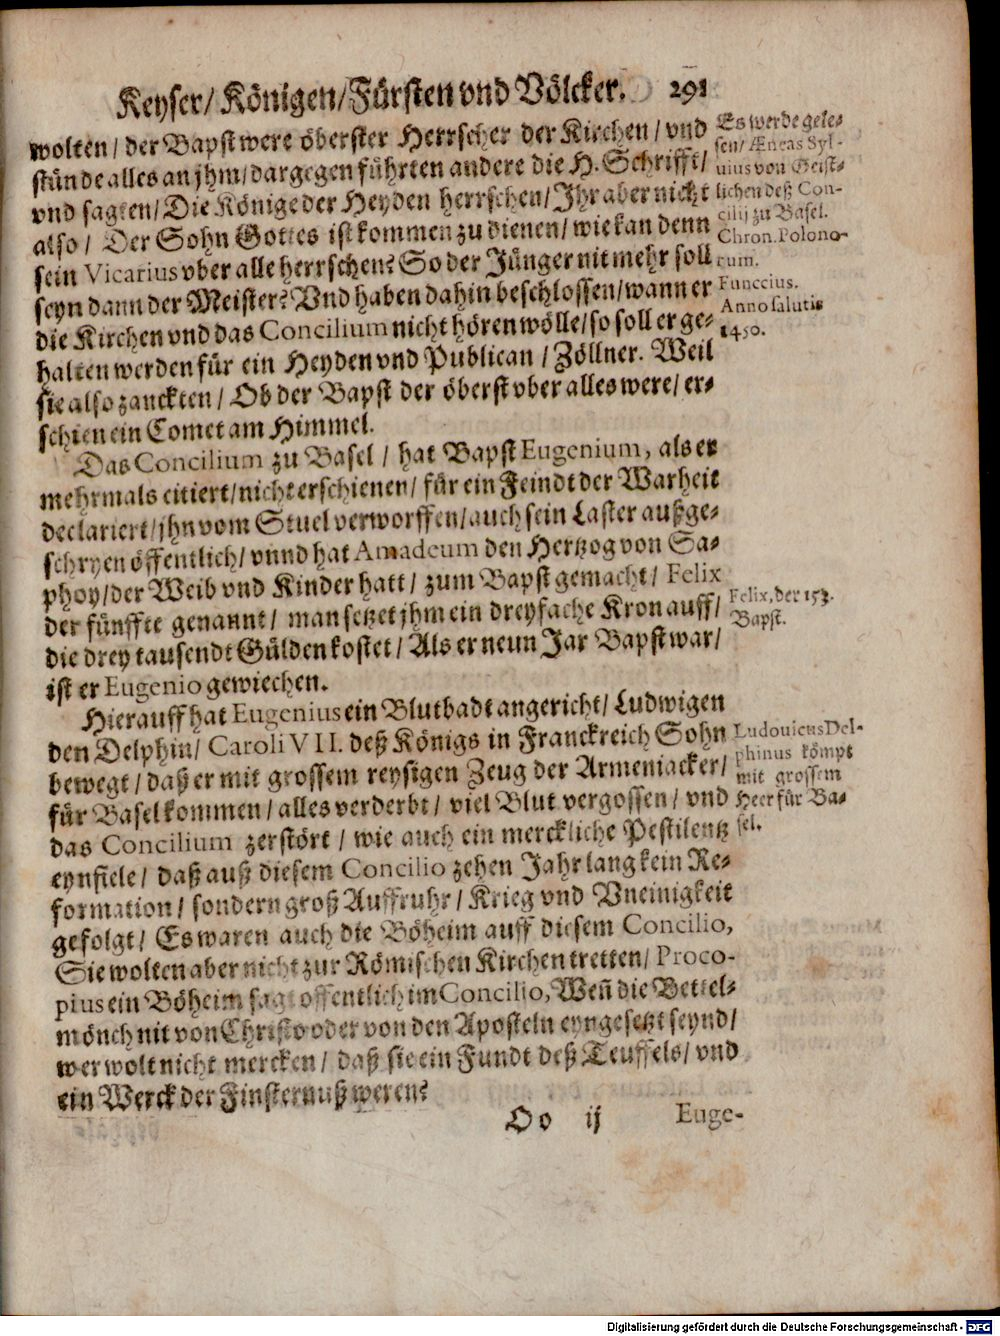 Keyser/ Königen/ Fürsten vnd Völcker. 291
wolten/ der Bapst were öberster Herrscher der Kirchen/ vnd
stünde alles an jhm/ dargegen führten andere die H. Schrifft/
vnd sagten/ Die Könige der Heyden herrschen/ Jhr aber nicht
also/ Der Sohn Gottes ist kommen zu dienen/ wie kan denn
sein Vicarius vber alle herrschen? So der Jünger nit mehr soll
seyn dann der Meister? Vnd haben dahin beschlossen/ wann er
die Kirchen vnd das Concilium nicht hören wölle/ so soll er ge-
halten werden für ein Heyden vnd Publican/ Zöllner. Weil
sie also zanckten/ Ob der Bapst der öberst vber alles were/ er-
schien ein Comet am Himmel.
Es werde gele-
sen/ Æneas Syl-
uius von Geist-
lichen deß Con-
cilij zu Basel.
Chron. Polono-
rum.
Funccius.
Anno salutis
1430.
Das Concilium zu Basel/ hat Bapst Eugenium, als er
mehrmals citiert/ nicht erschienen/ für ein Feindt der Warheit
declariert/ jhn vom Stuel verworffen/ auch sein Laster außge-
schryen öffentlich/ vnnd hat Amadeum den Hertzog von Sa-
phoy/ der Weib vnd Kinder hatt/ zum Bapst gemacht/ Felix
der fünffte genannt/ man setzet jhm ein dreyfache Kron auff/
die drey tausendt Gülden kostet/ Als er neun Jar Bapst war/
ist er Eugenio gewiechen.
Felix, der 153.
Bapst.
Hierauff hat Eugenius ein Blutbadt angericht/ Ludwigen
den Delphin/ Caroli VII. deß Königs in Franckreich Sohn
bewegt/ daß er mit grossem reysigen Zeug der Armeniacker/
für Basel kommen/ alles verderbt/ viel Blut vergossen/ vnd
das Concilium zerstört/ wie auch ein merckliche Pestilentz
eynfiele/ daß auß diesem Concilio zehen Jahr lang kein Re-
formation/ sondern groß Auffruhr/ Krieg vnd Vneinigkeit
gefolgt/ Es waren auch die Böheim auff diesem Concilio,
Sie wolten aber nicht zur Römischen Kirchen tretten/ Proco-
pius ein Böheim sagt offentlich im Concilio, Weñ die Bettel-
mönch nit von Christo oder von den Aposteln eyngesetzt seynd/
wer wolt nicht mercken/ daß sie ein Fundt deß Teuffels/ vnd
ein Werck der Finsternuß weren?
Ludouicus Del-
phinus kömpt
mit grossem
Heer für Ba-
sel.
Oo ij Euge-
Digitalisierung gefördert durch die Deutsche Forschungsgemeinschaft - DFG